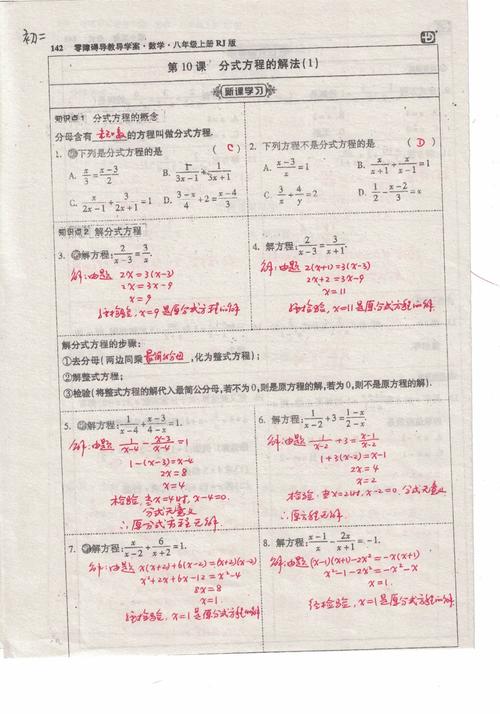 初二
142 零障碍导教导学案·数学·八年级上册 RJ 版
第 10 课 分式方程的解法(1)
新课学习
知识点1 分式方程的概念
分母含有 未知数 的方程叫做分式方程.
1. 下列是分式方程的是 ( C )
A. x/3 = (x-3)/2 B. 1/(3x-1) + 1/(3x+1)
C. x/(2x-1) + 3/(2x+1) = 1 D. (3-x)/4 + 2 = (x-4)/3
2. 下列方程不是分式方程的是 ( D )
A. (x-3)/x = 1 B. x/(x+1) + x/(x-1) = 1
C. 3/x + 4/y = 2 D. 1/2 - (x-2)/3 = x
知识点2 解分式方程
3. 解方程: 2/(x-3) = 3/x.
解:由题 2x=3(x-3)
2x=3x-9
x=9
经检验, x=9是原分式方程的解
4. 解方程: 2/(x-3) = 3/(x+1).
解:由题 2(x+1)=3(x-3)
2x+2=3x-9
x=11
经检验, x=11是原分式方程的解.
解分式方程的步骤:
①去分母(两边同乘 最简公分母 ,化为整式方程);
②解整式方程;
③检验(将整式方程的解代入最简公分母,若不为0,则是原方程的解,若为0,则不是原方程的解).
5. 解方程: 1/(x-4) + (x-3)/(4-x) = 1.
解:由题 1/(x-4) - (x-3)/(x-4) = 1
1-(x-3)=x-4
2x=8
x=4
检验,当x=4时, x-4=0.
分式无意义
∴原分式方程无解
6. 解方程: 1/(x-2) + 3 = (1-x)/(2-x).
解:由题 1/(x-2) + 3 = (x-1)/(x-2)
1+3(x-2)=x-1
2x=4
x=2
检验:当x=2时, x-2=0. 分式无意义
∴原方程无解.
7. 解方程: x/(x-2) + 6/(x+2) = 1.
解:由题 x(x+2)+6(x-2)=(x+2)(x-2)
x²+2x+6x-12=x²-4
8x=8
x=1.
经检验, x=1是原分式方程的解.
8. 解方程: (x-1)/x - 2x/(x+1) = -1.
解:由题 (x-1)(x+1)-2x²=-x(x+1)
x²-1-2x²=-x²-x
x=1.
经检验, x=1是原分式方程的解.